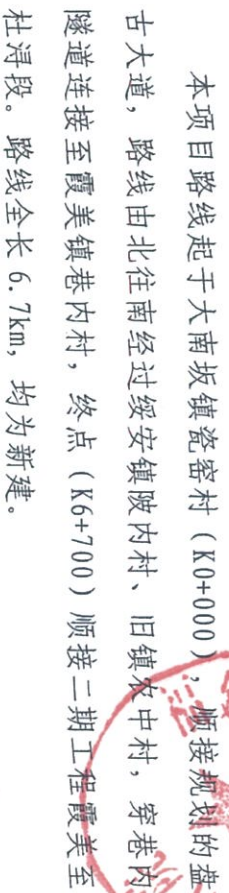 本项目路线起于大南坂镇瓷窑村（K0+000），顺接规划的盘
古大道，路线由北往南经过绥安镇陂内村、旧镇农中村，穿巷内
隧道连接至霞美镇巷内村，终点（K6+700）顺接二期工程霞美至
杜浔段。路线全长 6.7km，均为新建。